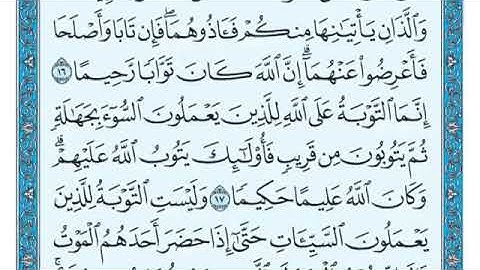 وَٱلَّذَانِ يَأْتِيَـٰنِهَا مِنكُمْ فَـَٔاذُوهُمَا ۖ فَإِن تَابَا وَأَصْلَحَا
فَأَعْرِضُوا۟ عَنْهُمَآ ۗ إِنَّ ٱللَّهَ كَانَ تَوَّابًا رَّحِيمًا ١٦
إِنَّمَا ٱلتَّوْبَةُ عَلَى ٱللَّهِ لِلَّذِينَ يَعْمَلُونَ ٱلسُّوٓءَ بِجَهَـٰلَةٍ
ثُمَّ يَتُوبُونَ مِن قَرِيبٍ فَأُو۟لَـٰٓئِكَ يَتُوبُ ٱللَّهُ عَلَيْهِمْ ۗ
وَكَانَ ٱللَّهُ عَلِيمًا حَكِيمًا ١٧ وَلَيْسَتِ ٱلتَّوْبَةُ لِلَّذِينَ
يَعْمَلُونَ ٱلسَّيِّـَٔاتِ حَتَّىٰٓ إِذَا حَضَرَ أَحَدَهُمُ ٱلْمَوْتُ